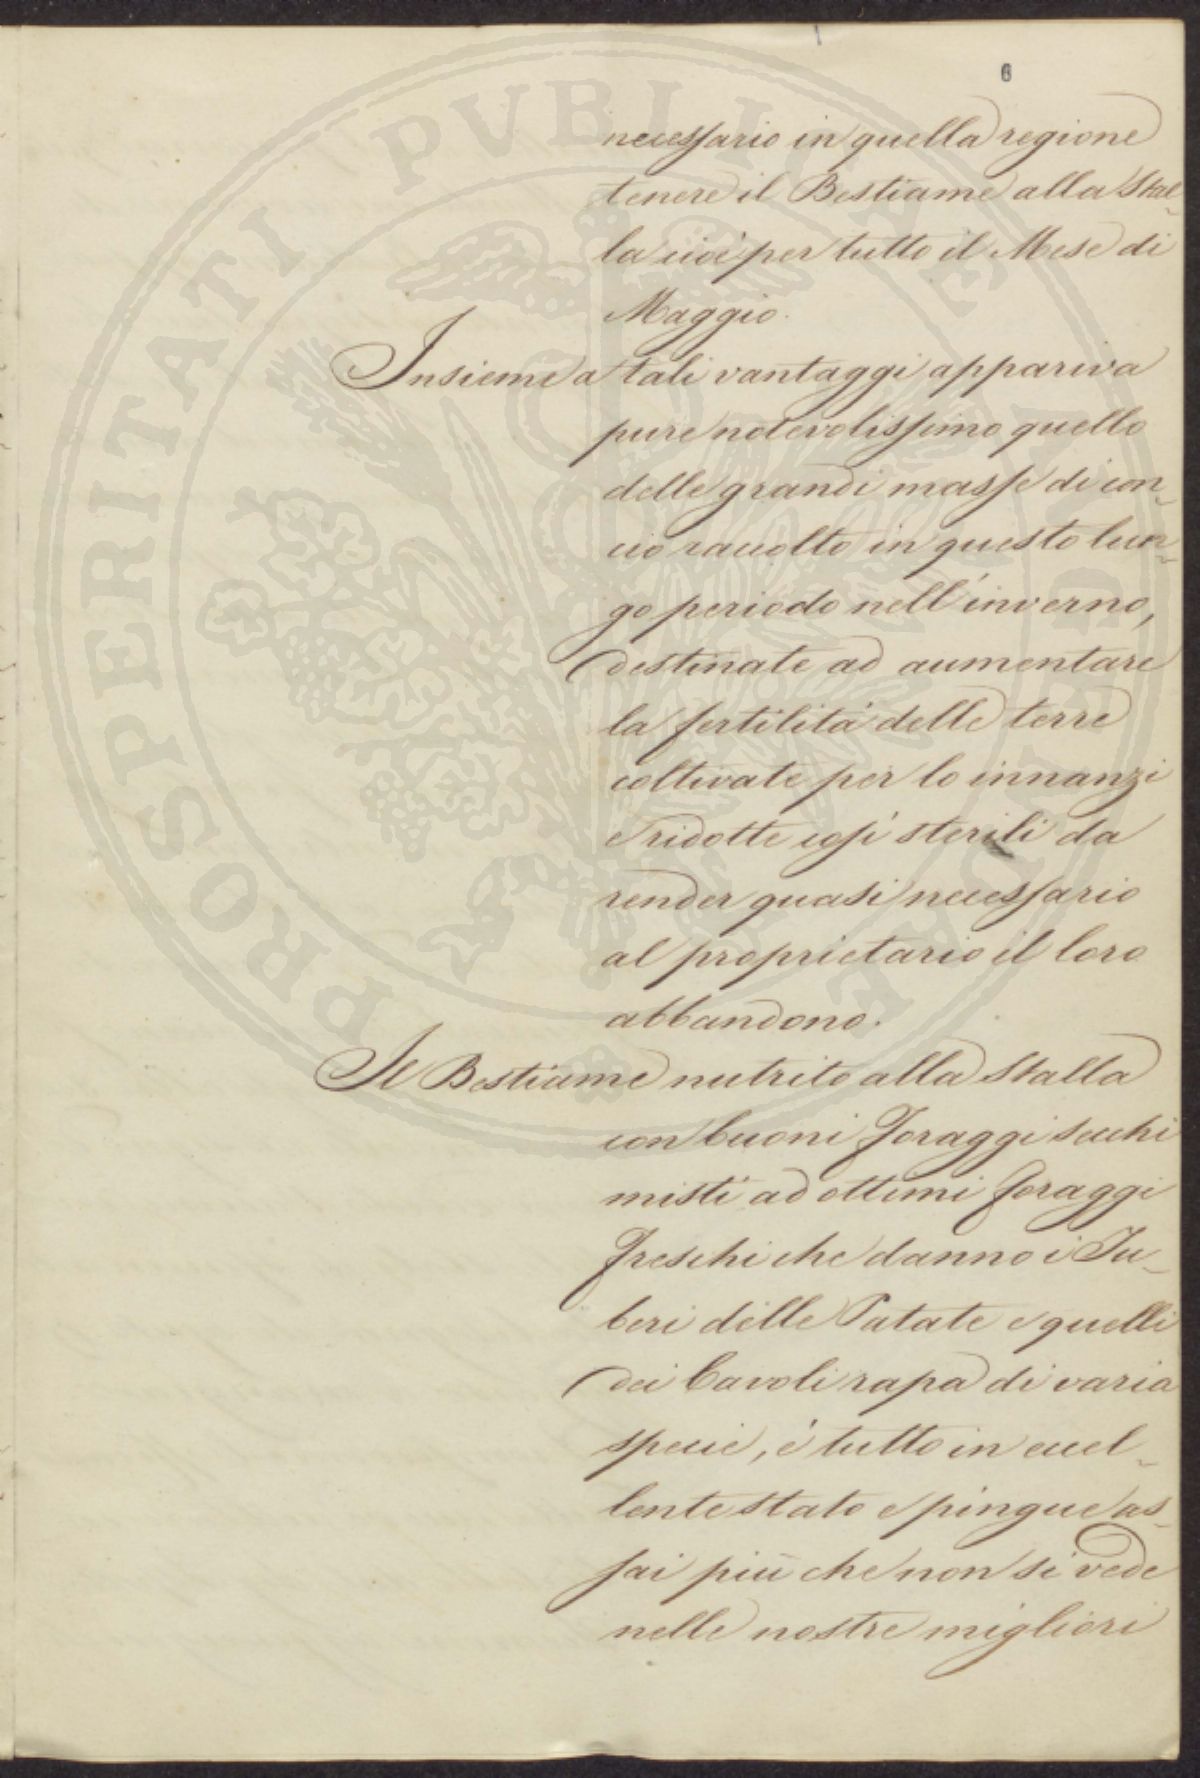 6
necessario in quella regione
tenere il Bestiame alla Stal-
la cioè per tutto il Mese di
Maggio.
Insieme a tali vantaggi appariva
pure notevolissimo quello
delle grandi masse di con-
cio raccolto in questo lun-
go periodo nell'inverno,
destinate ad aumentare
la fertilità delle terre
coltivate per lo innanzi
e ridotte così sterili da
render quasi necessario
al proprietario il loro
abbandono.
Il Bestiame nutrito alla Stalla
con buoni Foraggi secchi
misti ad ottimi foraggi
freschi che danno i Tu-
beri delle Patate e quelli
dei Cavoli rapa di varia
specie, è tutto in eccel-
lente stato e pingue as-
sai più che non si vede
nelle nostre migliori
PROSPERITATI PVBLICAE AVGENDAE